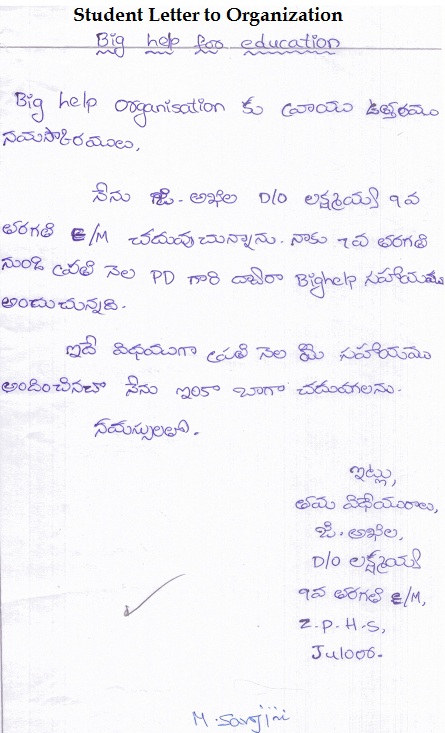 Student Letter to Organization
Big help for education
Big help organisation కు వ్రాయు ఉత్తరము
నమస్కారములు,
నేను జి. అఖిల D/O లక్ష్మయ్య 9వ
తరగతి E/M చదువుచున్నాను. నాకు 7వ తరగతి
నుండి ప్రతి నెల PD గారి ద్వారా Bighelp సహాయము
అందుచున్నది.
ఇదే విధముగా ప్రతి నెల మీ సహాయము
అందించినచో నేను ఇంకా బాగా చదువగలను.
నమస్సులతో.
ఇట్లు,
తమ విధేయురాలు,
జి. అఖిల,
D/O లక్ష్మయ్య
9వ తరగతి E/M,
Z.P.H.S,
Juloor.
M. Sarojini